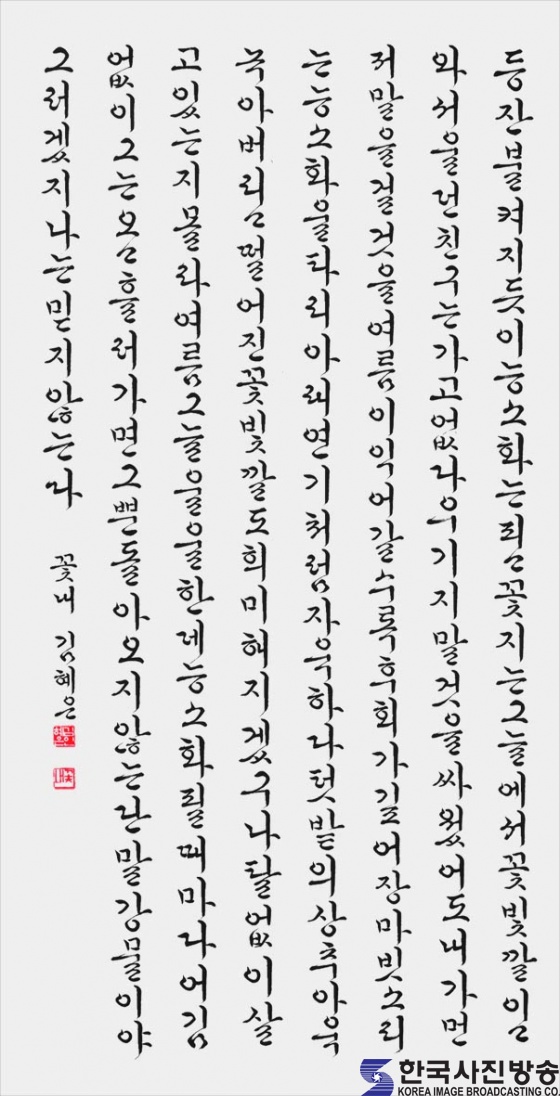 등잔불켜지듯이능소화는피고꽃지는그늘에서꽃빛깔이고
와서울던친구는가고없다우기지말것을싸웠어도내가먼
저말을걸것을여름이익어갈수록후회가깊어장마빗소리
는능소화울타리아래연기처럼자욱하다텃밭의상추아욱
녹아버리고떨어진꽃빛깔도희미해지겠구나탈없이살
고있는지몰라여름그늘울울한데능소화필때마다어김
없이그는오고흘러가면그뿐돌아오지않는단말강물이야
그러겠지나는믿지않는다
꽃내 김혜은
한국사진방송
KOREA IMAGE BROADCASTING CO.